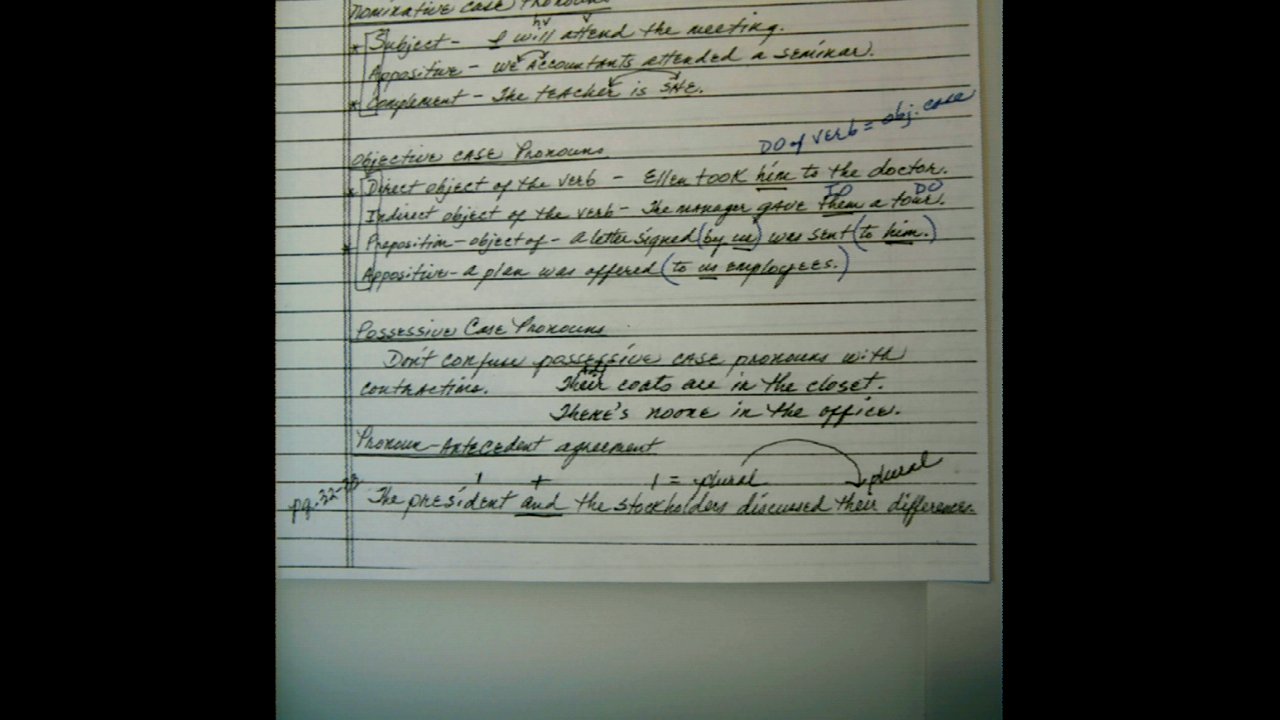 Nominative case Pronouns
hv v
* Subject - I will attend the meeting.
Appositive - we accountants attended a seminar.
* Complement - The teacher is SHE.
DO of verb = obj. case
Objective case Pronouns
* Direct object of the verb - Ellen took him to the doctor.
IO DO
Indirect object of the verb - The manager gave them a tour.
* Preposition - object of - A letter signed (by us) was sent (to him.)
Appositive - a plan was offered (to us employees.)
Possessive Case Pronouns
Don't confuse possessive case pronouns with
Adj
contractions. Their coats are in the closet.
There's no one in the office.
Pronoun - Antecedent agreement
1 + 1 = plural plural
pg. 32-
The president and the stockholders discussed their differences.